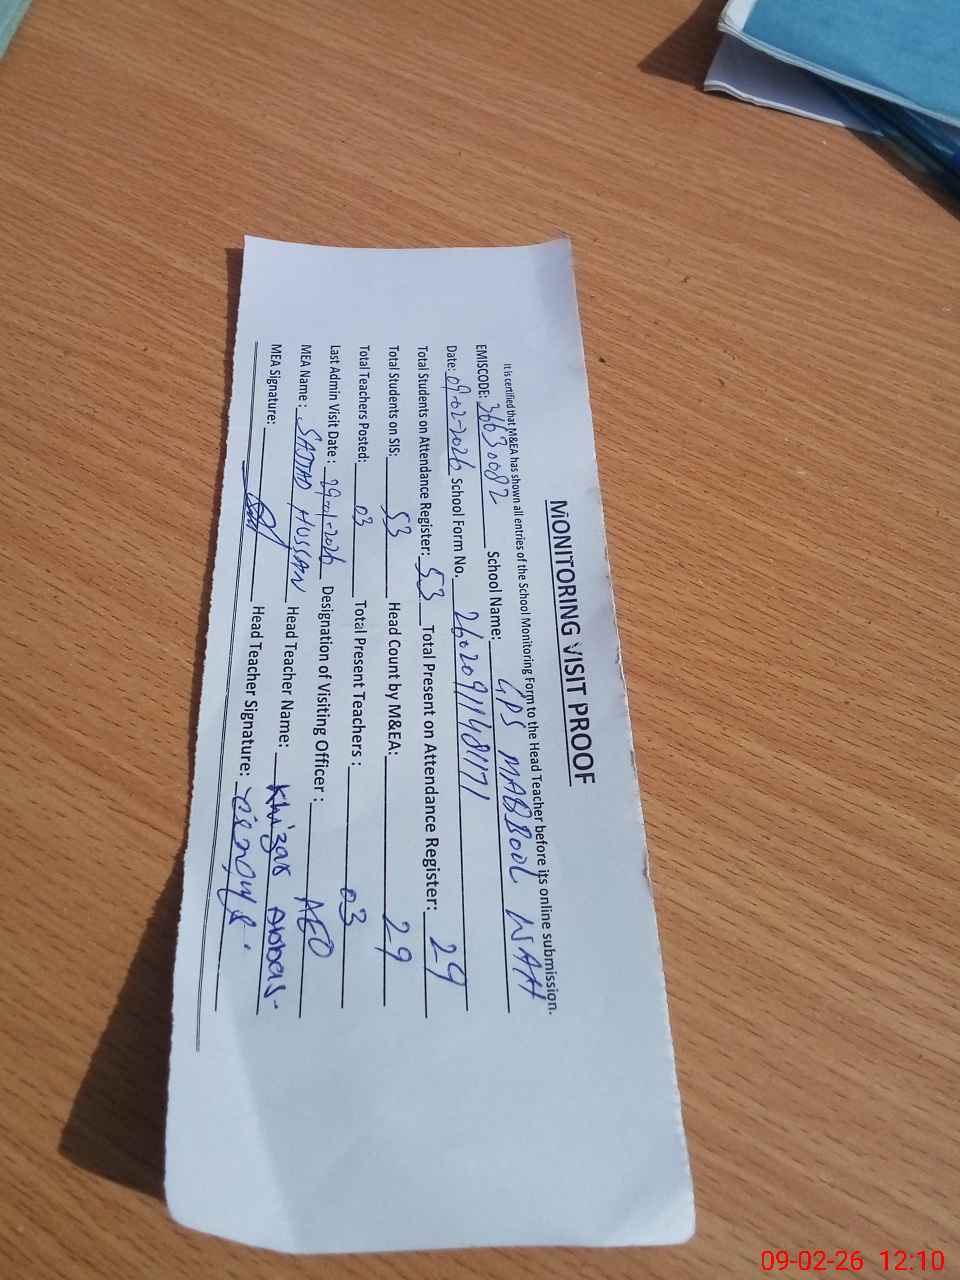 MONITORING VISIT PROOF
It is certified that M&EA has shown all entries of the School Monitoring Form to the Head Teacher before its online submission.
EMISCODE: 36630082 School Name: GPS MAQBOOL WAH
Date: 09-02-2026 School Form No. 26020911481171
Total Students on Attendance Register: 53 Total Present on Attendance Register: 29
Total Students on SIS: 53 Head Count by M&EA: 29
Total Teachers Posted: 03 Total Present Teachers : 03
Last Admin Visit Date : 29-01-2026 Designation of Visiting Officer : AEO
MEA Name : SAJJAD HUSSAIN Head Teacher Name: Khizar Abbas.
MEA Signature: Head Teacher Signature:
09-02-26 12:10